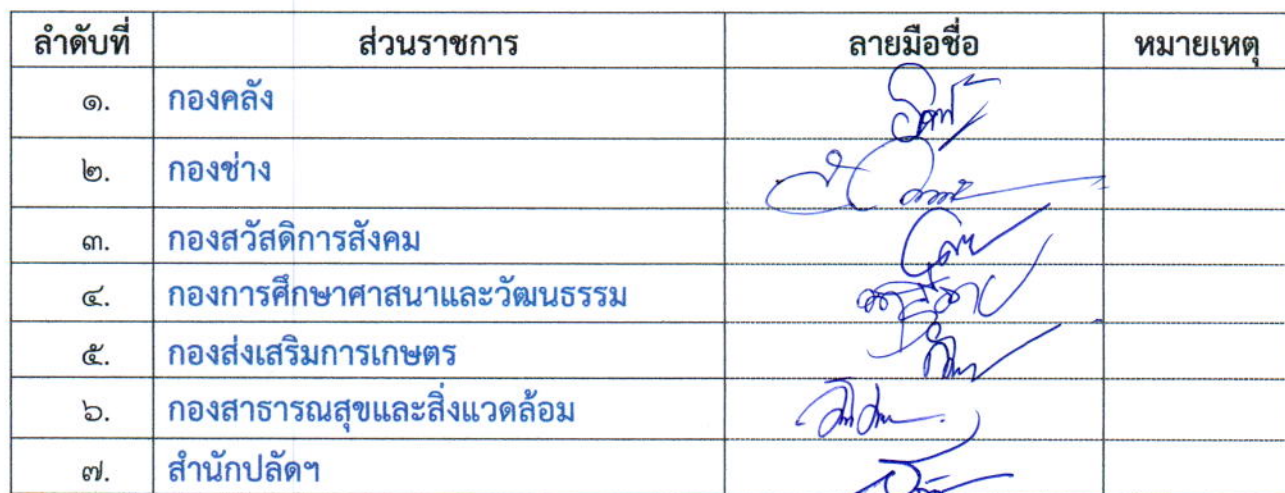 ลำดับที่ ส่วนราชการ ลายมือชื่อ หมายเหตุ
๑. กองคลัง
๒. กองช่าง
๓. กองสวัสดิการสังคม
๔. กองการศึกษาศาสนาและวัฒนธรรม
๕. กองส่งเสริมการเกษตร
๖. กองสาธารณสุขและสิ่งแวดล้อม
๗. สำนักปลัดฯ